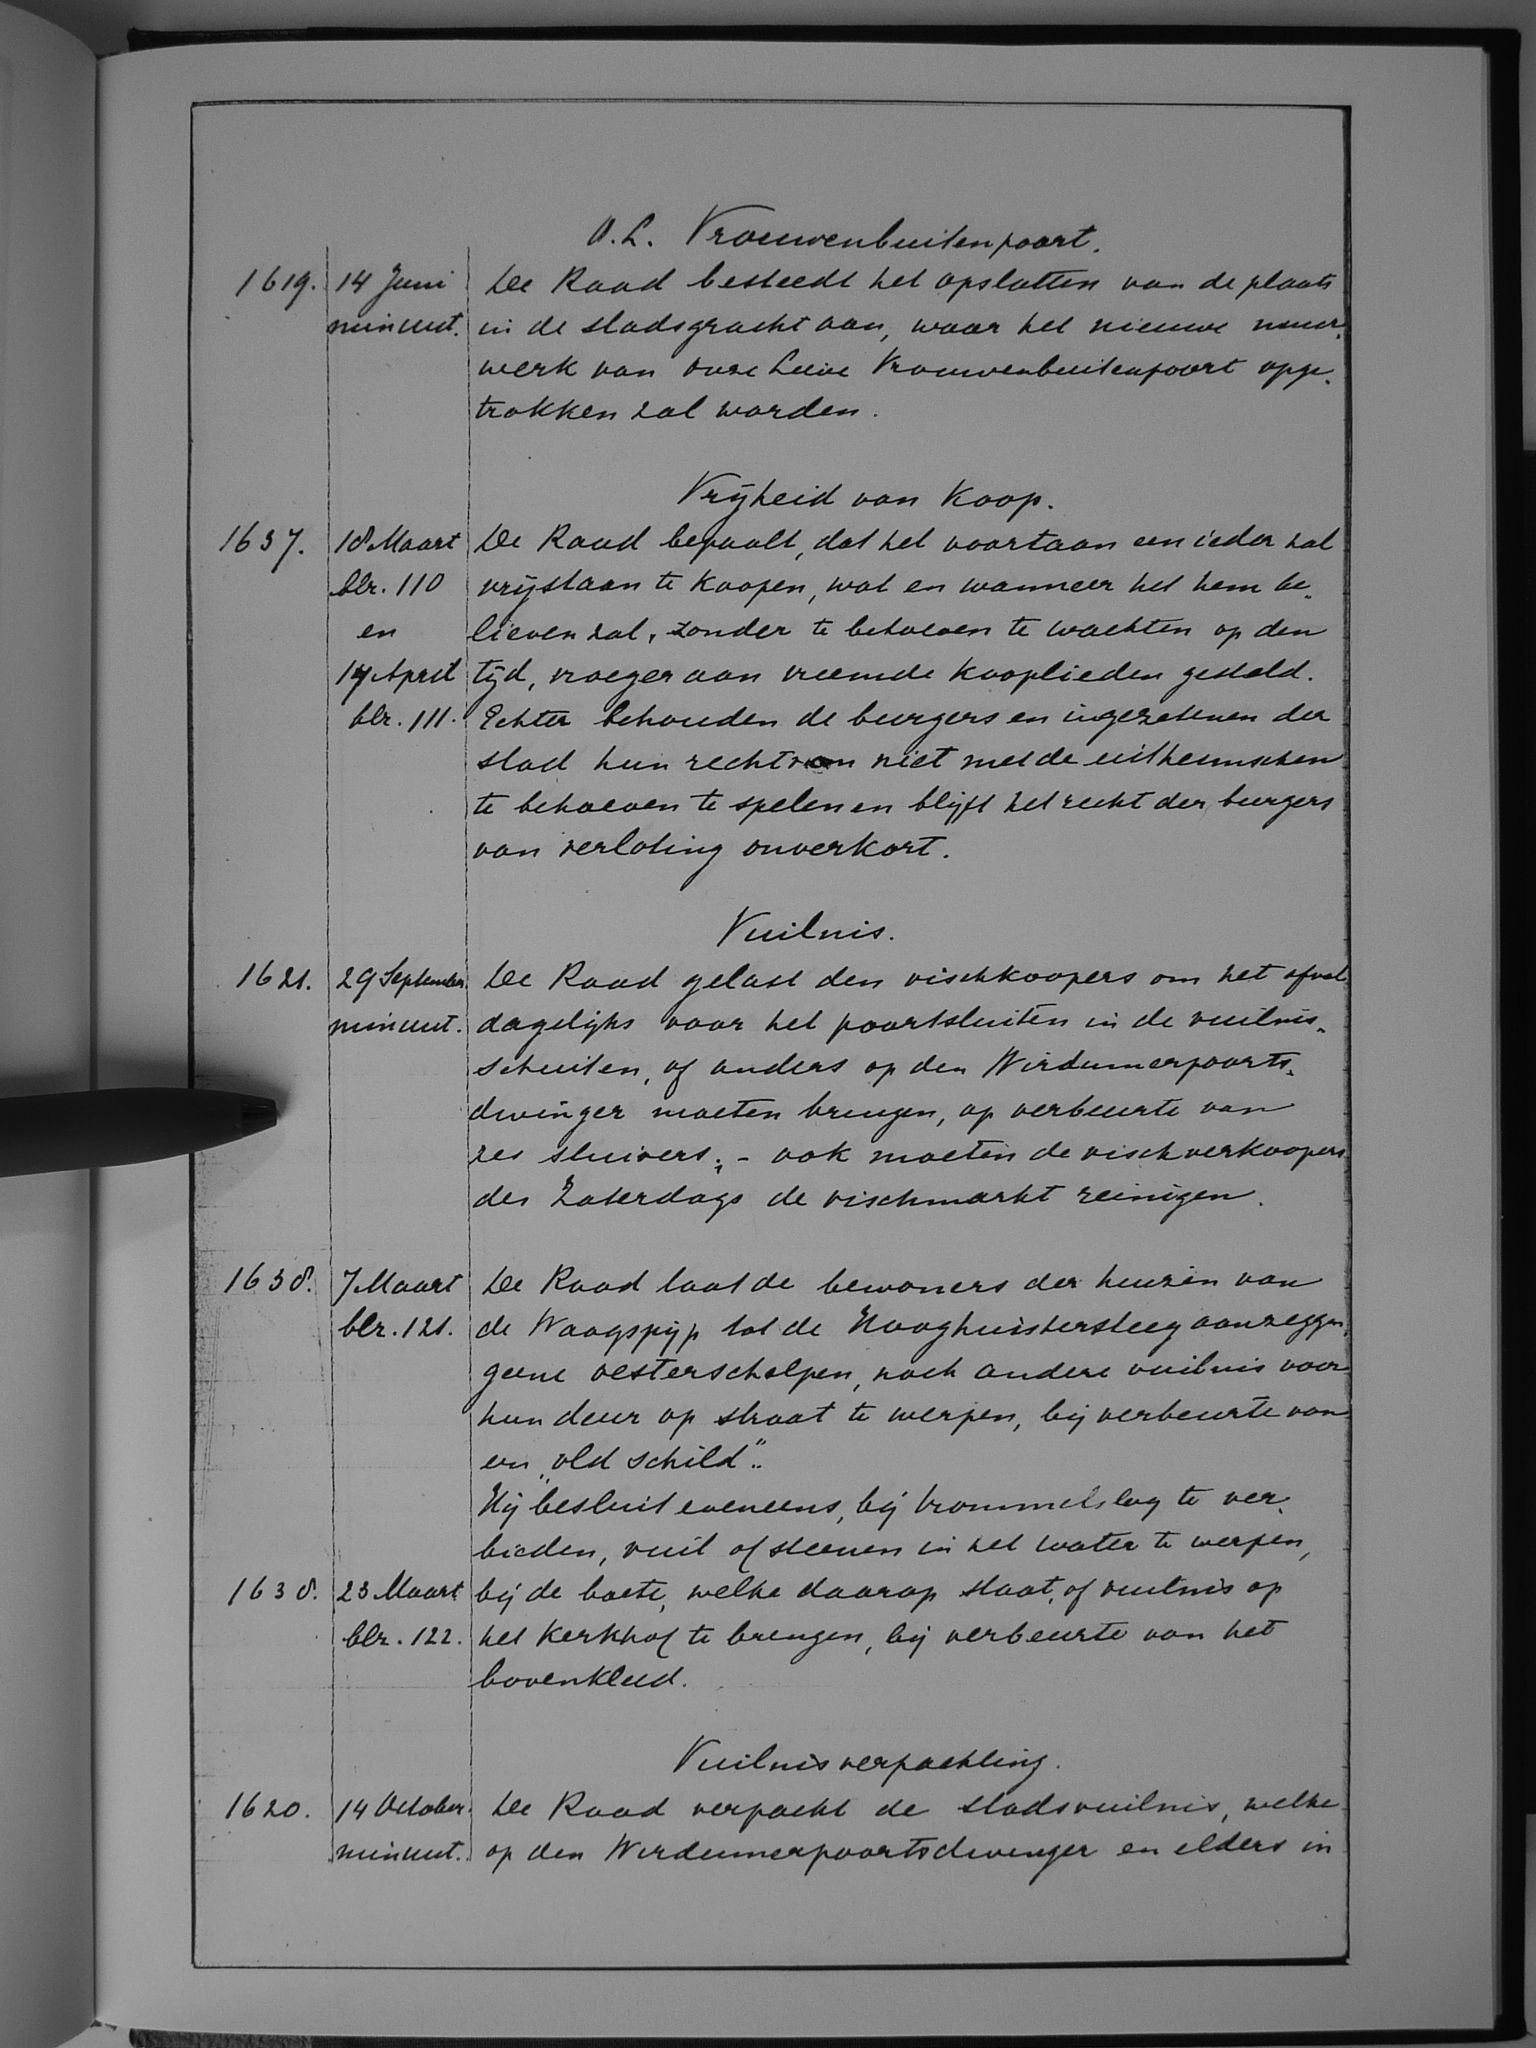 O. L. Vrouwenbuitenpoort.
1619. 14 Juni De Raad besteedt het opslatten van de plaats
minuut. in de stadsgracht aan, waar het nieuwe muur-
werk van onze Lieve Vrouwenbuitenpoort opge-
trokken zal worden.
Vrijheid van Koop.
1637. 18 Maart De Raad bepaalt, dat het voortaan een ieder zal
blz. 110 vrijstaan te koopen, wat en wanneer het hem be-
en lieven zal, zonder te behoeven te wachten op den
14 April tijd, vroeger aan vreemde kooplieden gesteld.
blz. 111. Echter behouden de burgers en ingezetenen der
stad hun recht om niet met de uitheemschen
te behoeven te spelen en blijft het recht der burgers
van verloting onverkort.
Vuilnis.
1621. 29 September De Raad gelast den vischkoopers om het afval
minuut. dagelijks voor het poortsluiten in de vuilnis-
schuiten, of anders op den Wirdumerpoorts-
dwinger moeten brengen, op verbeurte van
zes stuivers; - ook moeten de vischverkoopers
des Zaterdags de vischmarkt reinigen.
1638. 7 Maart De Raad laat de bewoners der huizen van
blz. 121. de Waagspijp tot de Hooghuistersteeg aanzeggen,
geene oesterschelpen, noch andere vuilnis voor
hun deur op straat te werpen, bij verbeurte van
een „old schild".
Hij besluit eveneens, bij trommelslag te ver-
bieden, vuil of steenen in het water te werpen,
1638. 23 Maart bij de boete, welke daarop staat, of vuilnis op
blz. 122. het kerkhof te brengen, bij verbeurte van het
bovenkleed.
Vuilnisverpachting.
1620. 14 October De Raad verpacht de stadsvuilnis, welke
minuut. op den Wirdumerpoortsdwinger en elders in